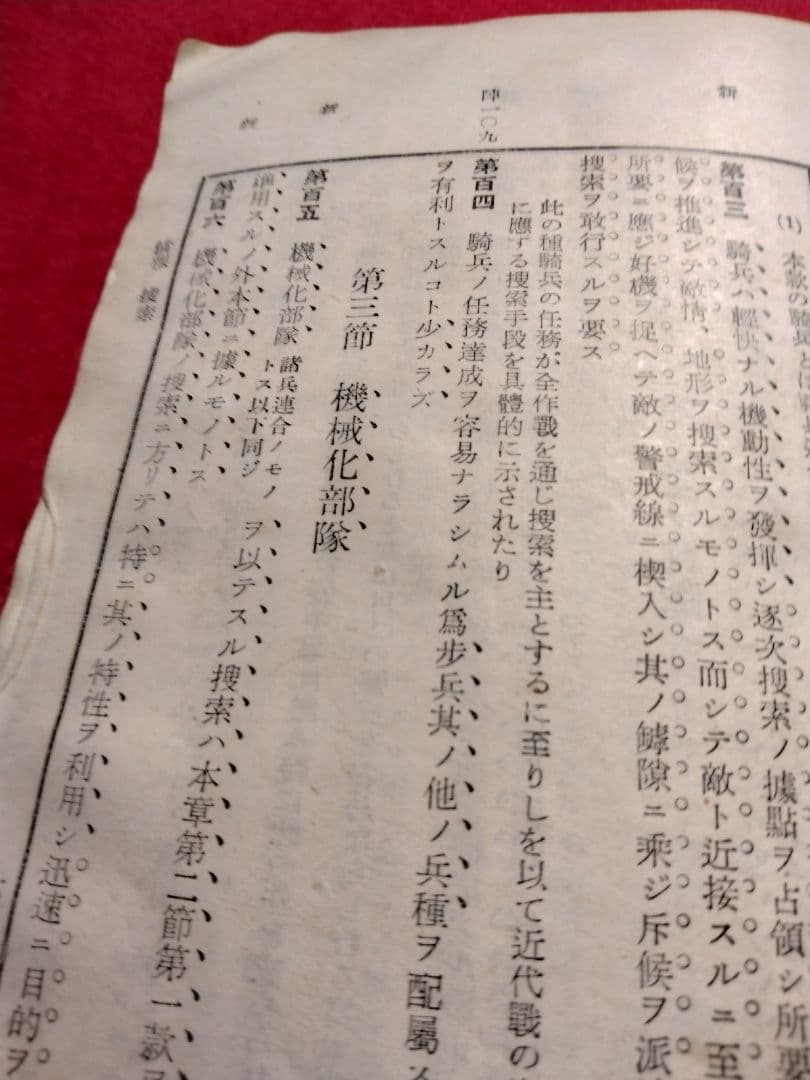 新
陣一〇九
新
新
(1) 本款の騎兵とは
第百三 騎兵ハ輕快ナル機動性ヲ發揮シ逐次搜索ノ據點ヲ占領シ所要
候ヲ推進シテ敵情、地形ヲ搜索スルモノトス而シテ敵ト近接スルニ至
所要ニ應ジ好機ヲ捉ヘテ敵ノ警戒線ニ楔入シ其ノ罅隙ニ乘ジ斥候ヲ派
搜索ヲ敢行スルヲ要ス
此の種騎兵の任務が全作戰を通じ搜索を主とするに至りしを以て近代戰の
に應ずる搜索手段を具體的に示されたり
第百四 騎兵ノ任務達成ヲ容易ナラシムル爲步兵其ノ他ノ兵種ヲ配屬ス
ヲ有利トスルコト少カラズ
第三節 機械化部隊
第百五 機械化部隊 諸兵連合ノモノトス以下同ジ ヲ以テスル搜索ハ本章第二節第一款ヲ
準用スルノ外本節ニ據ルモノトス
第百六 機械化部隊ノ搜索ニ方リテハ特ニ其ノ特性ヲ利用シ迅速ニ目的ヲ
情報 搜索